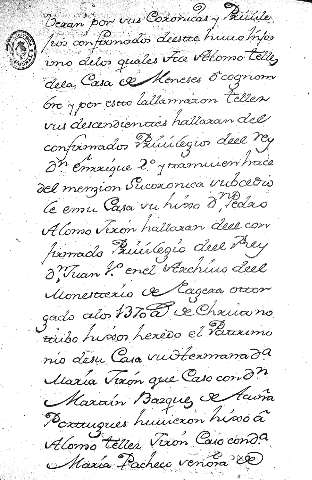 Veran por sus Coronicas y Priuile
jios confirmados de este huuo hijos
uno delos quales fue Alomo tellez
dela Casa de Meneses Y cognom
bre y por esto lallamaron Tellez
sus descendientes hallaran del
confirmados Priuilegios deel rey
Dn. Enrique 2º. y tamuien hace
del menzion su coronica subcedio
le en su Casa su hixo Dn. Pedro
Alomo Jirón hallaran deel con
firmado Priuilegio deel Rey
Dn. Juan 1º. en el Archiuo deel
Monesterio de Nagera otor
gado año 1370 as. de Christo no
tubo hixos heredo el Patrimo
nio desu Casa su Hermana Da.
María Jirón que Caso con Dn.
Martin Bazquez de Acuña
Portugues huuieron hixo á
Alomo tellez Jirón Caso con Da.
María Pacheco señora de